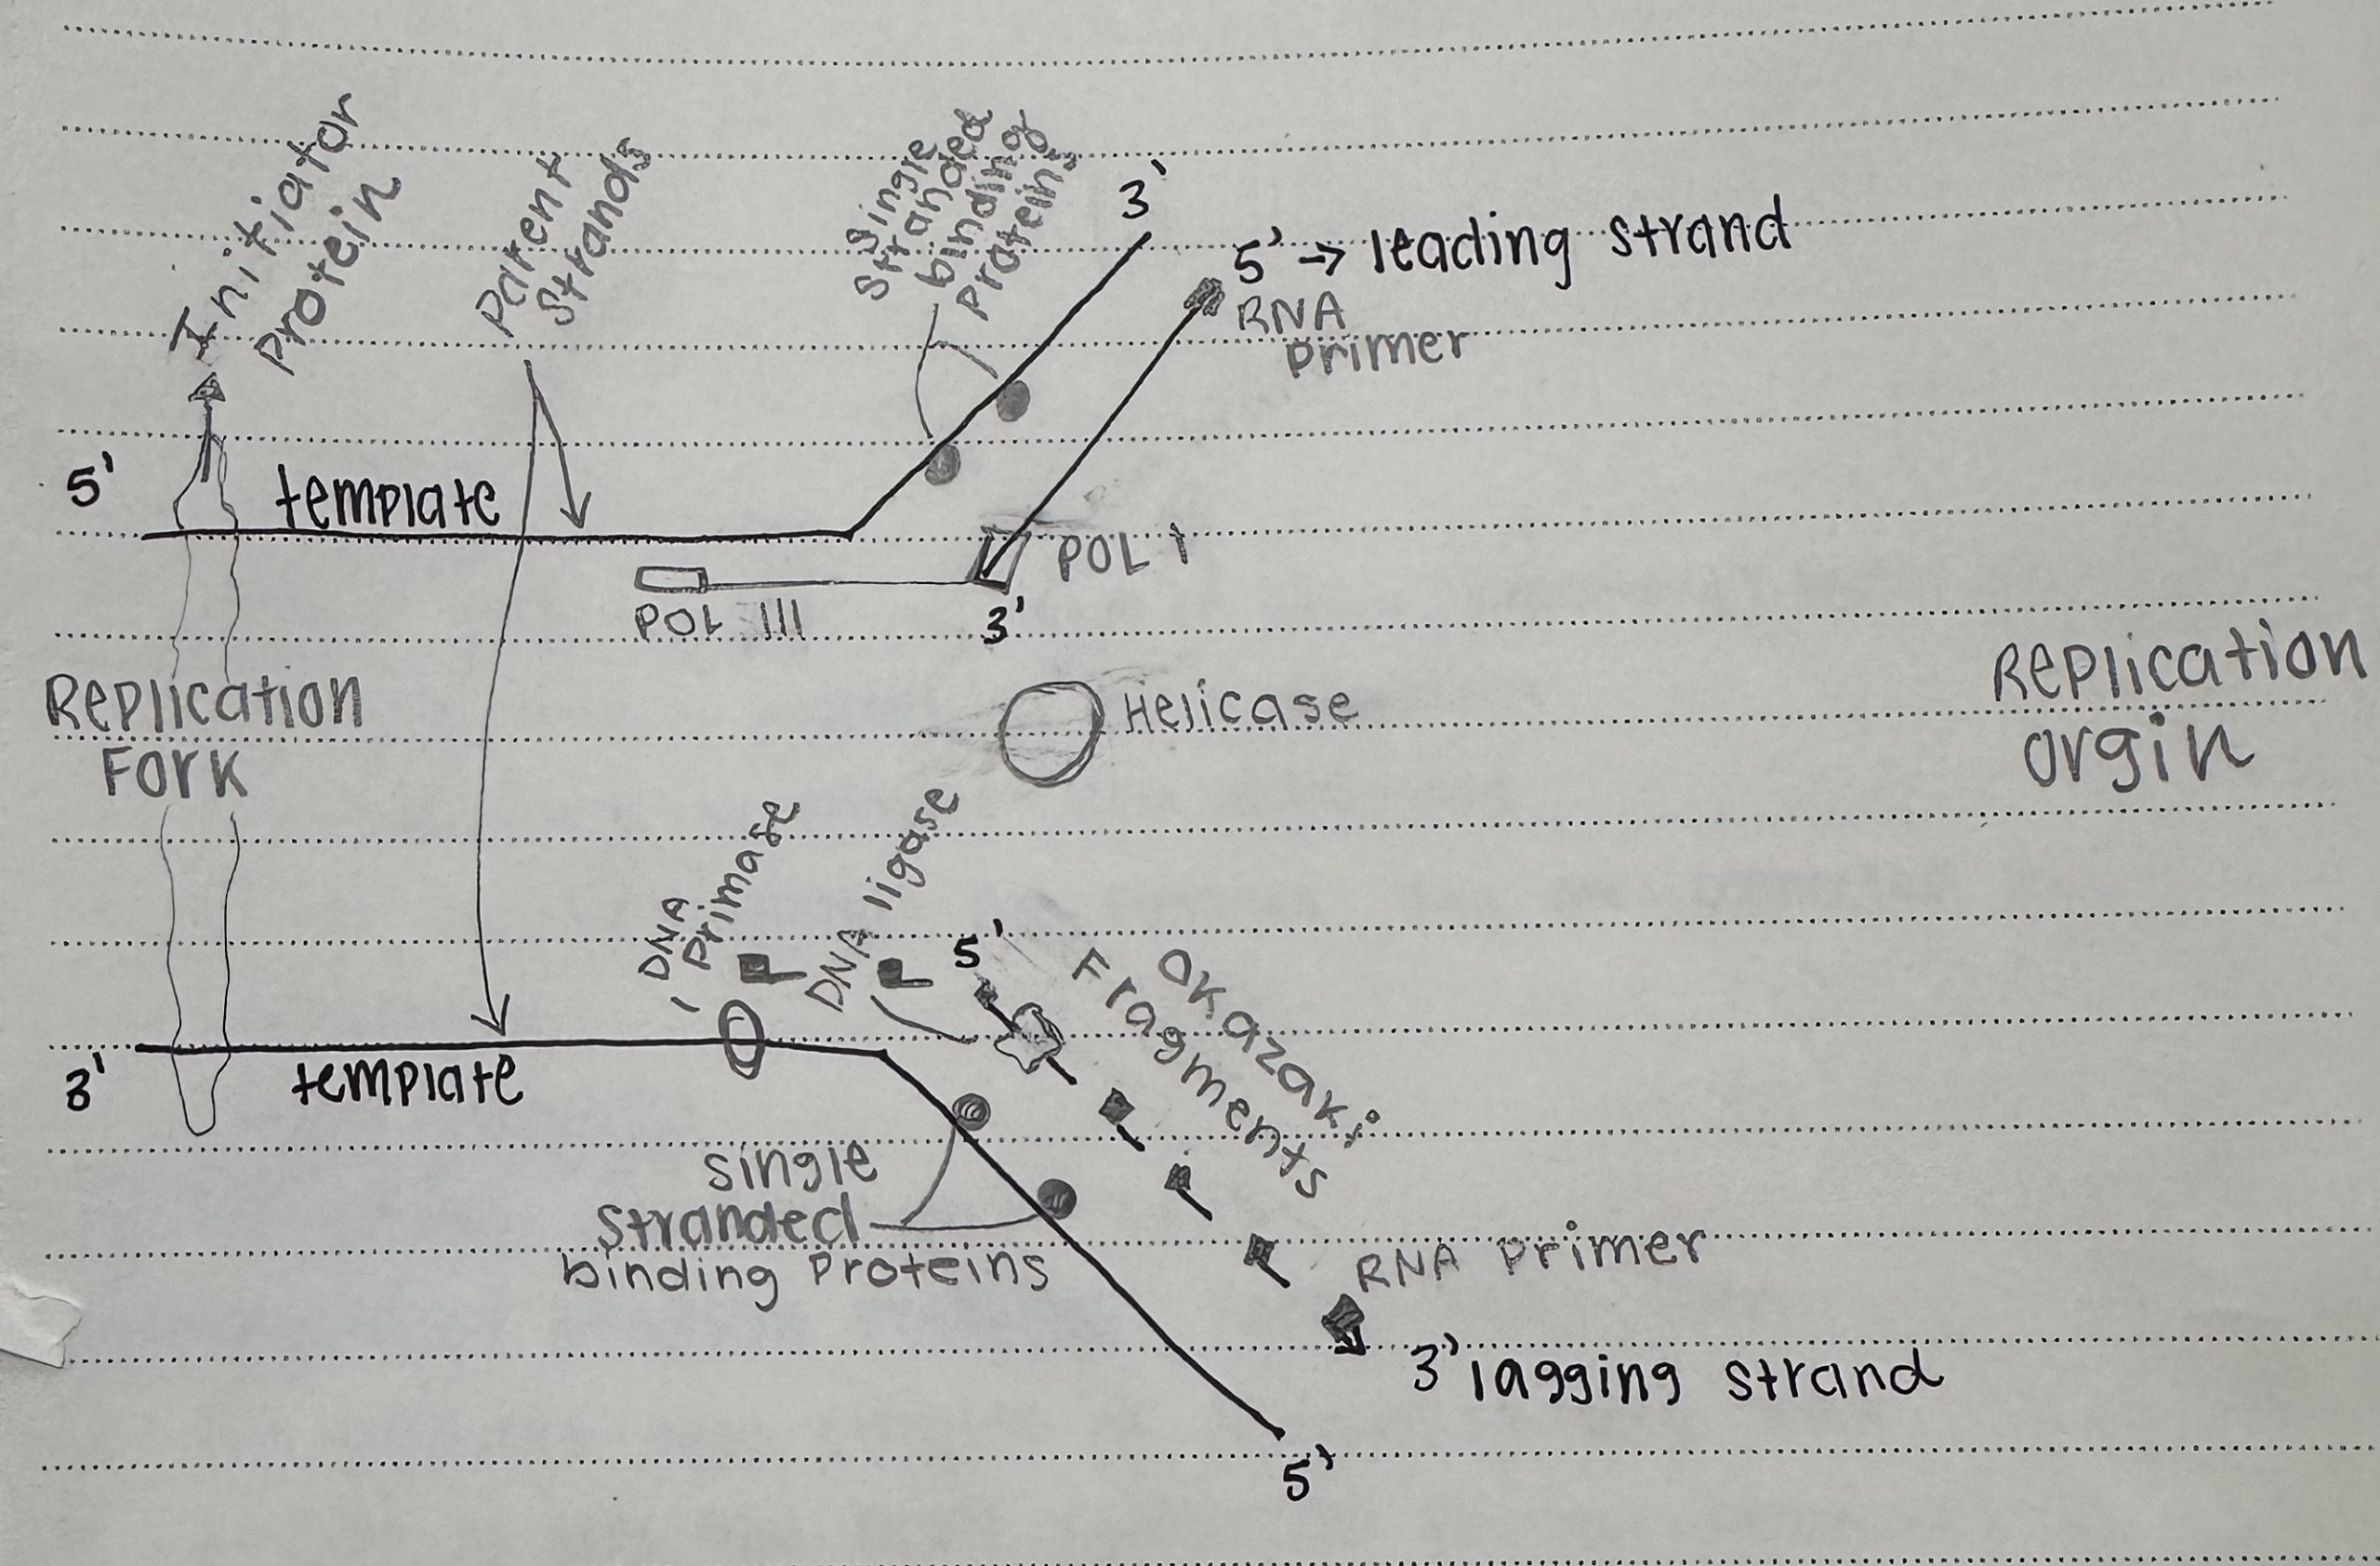 Initiator
Protein
Parent
Strands
Single
Stranded
binding
Proteins
3'
5' → leading strand
RNA
primer
5'
template
POL I
POL III
3'
Replication
Fork
Helicase
Replication
Orgin
DNA
Primase
DNA ligase
5'
Okazaki
Fragments
3'
template
Single
Stranded
binding Proteins
RNA Primer
3' lagging strand
5'